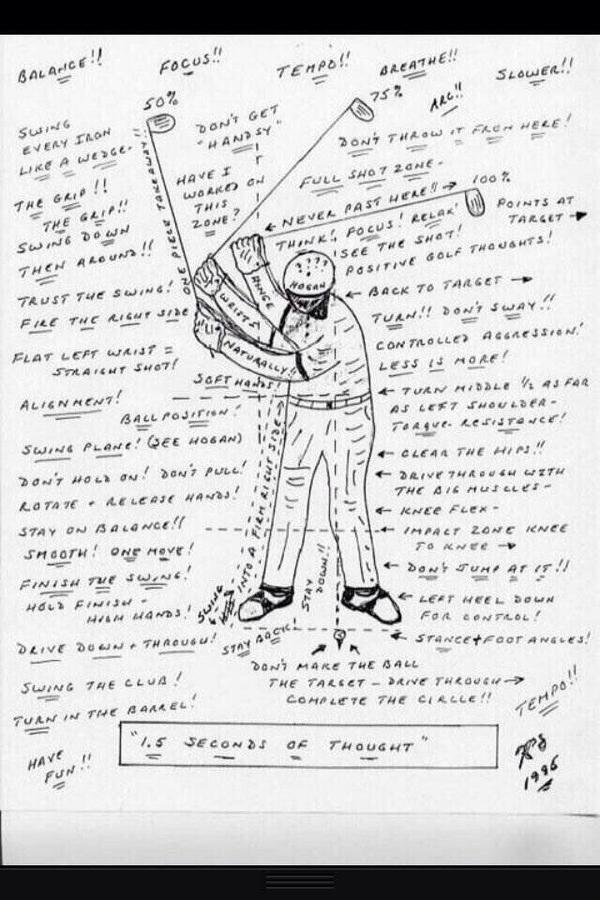 BALANCE!!
FOCUS!!
TEMPO!!
BREATHE!!
SLOWER!!
50%
75%
ARG!!
SWING
EVERY IRON
LIKE A WEDGE-
DON'T GET
"HANDSY"
DON'T THROW IT FROM HERE!
THE GRIP!!
THE GRIP!!
HAVE I
WORKED ON
THIS
ZONE?
FULL SHOT ZONE-
100%
POINTS AT
TARGET
ONE PIECE TAKEAWAY!!
NEVER PAST HERE!!
THINK! FOCUS! RELAX!
SEE THE SHOT!
POSITIVE GOLF THOUGHTS!
SWING DOWN
THEN AROUND!!
TRUST THE SWING!
FIRE THE RIGHT SIDE
????
HOGAN
HINGE
WRISTS
NATURALLY!!
BACK TO TARGET
TURN!! DON'T SWAY!!
CONTROLLED AGGRESSION!
LESS IS MORE!
FLAT LEFT WRIST =
STRAIGHT SHOT!
SOFT HANDS!
ALIGNMENT!
BALL POSITION!
TURN MIDDLE 1/2 AS FAR
AS LEFT SHOULDER-
TORQUE- RESISTANCE!
SWING PLANE! (SEE HOGAN)
CLEAR THE HIPS!!
DON'T HOLD ON! DON'T PULL!
DRIVE THROUGH WITH
THE BIG MUSCLES-
ROTATE + RELEASE HANDS!
KNEE FLEX-
STAY ON BALANCE!!
IMPACT ZONE KNEE
TO KNEE
SMOOTH! ONE MOVE!
DON'T JUMP AT IT!!
FINISH THE SWING!
INTO A FIRM RIGHT SIDE
STAY
DOWN!!
SWING
HOLD FINISH-
HIGH HANDS!
LEFT HEEL DOWN
FOR CONTROL!
DRIVE DOWN + THROUGH!
STAY BACK
STANCE + FOOT ANGLES!
DON'T MAKE THE BALL
THE TARGET - DRIVE THROUGH
COMPLETE THE CIRCLE!!
SWING THE CLUB!
TURN IN THE BARREL!
TEMPO!!
"1.5 SECONDS OF THOUGHT"
HAVE
FUN!!
1996